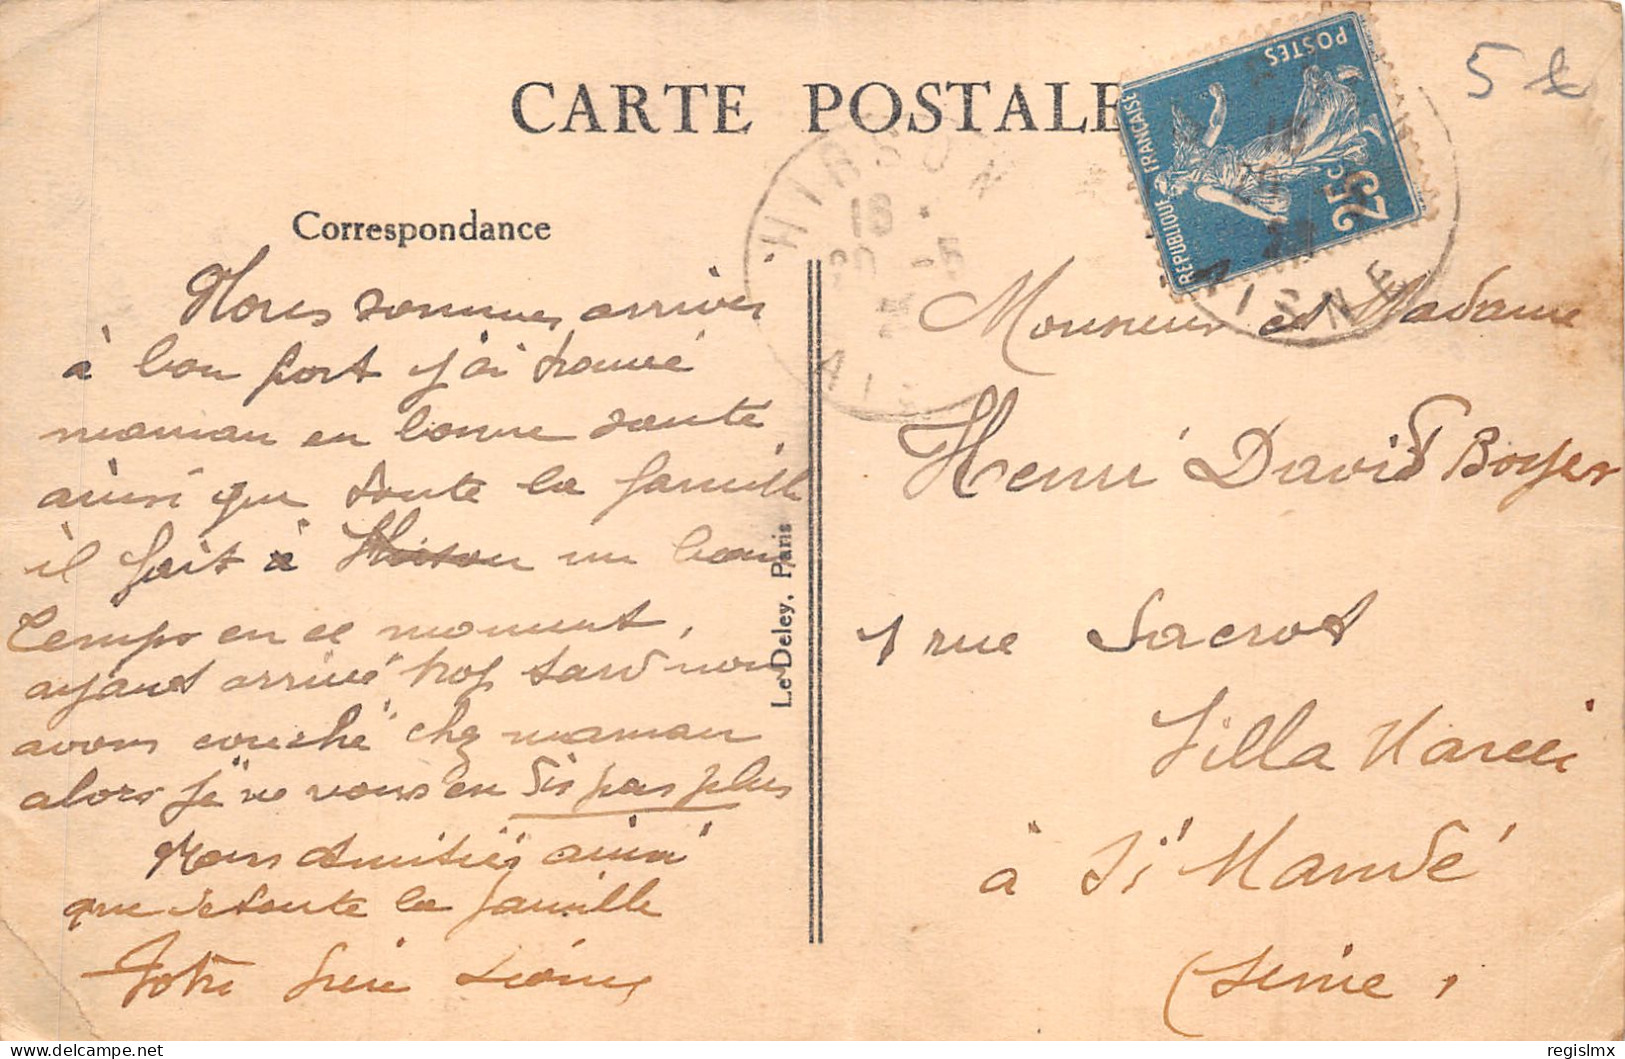 CARTE POSTALE
5
POSTES
RÉPUBLIQUE FRANÇAISE
25c
HIRSON
18
20 -5
AISNE
Correspondance
Nous sommes arrivés
à bon port j'ai trouvé
maman en bonne santé
ainsi que toute la famille
il fait à Hirson un beau
temps en ce moment,
ayant arrivé trop tard nous
avons couché chez maman
alors je ne vous en dis pas plus
Mais amitiés ainsi
que de toute la famille
Votre
Le Deley, Paris
Monsieur et Madame
Henri David Boyer
1 rue Sacrot
Villa
à St Mandé
(Seine)
regislmx